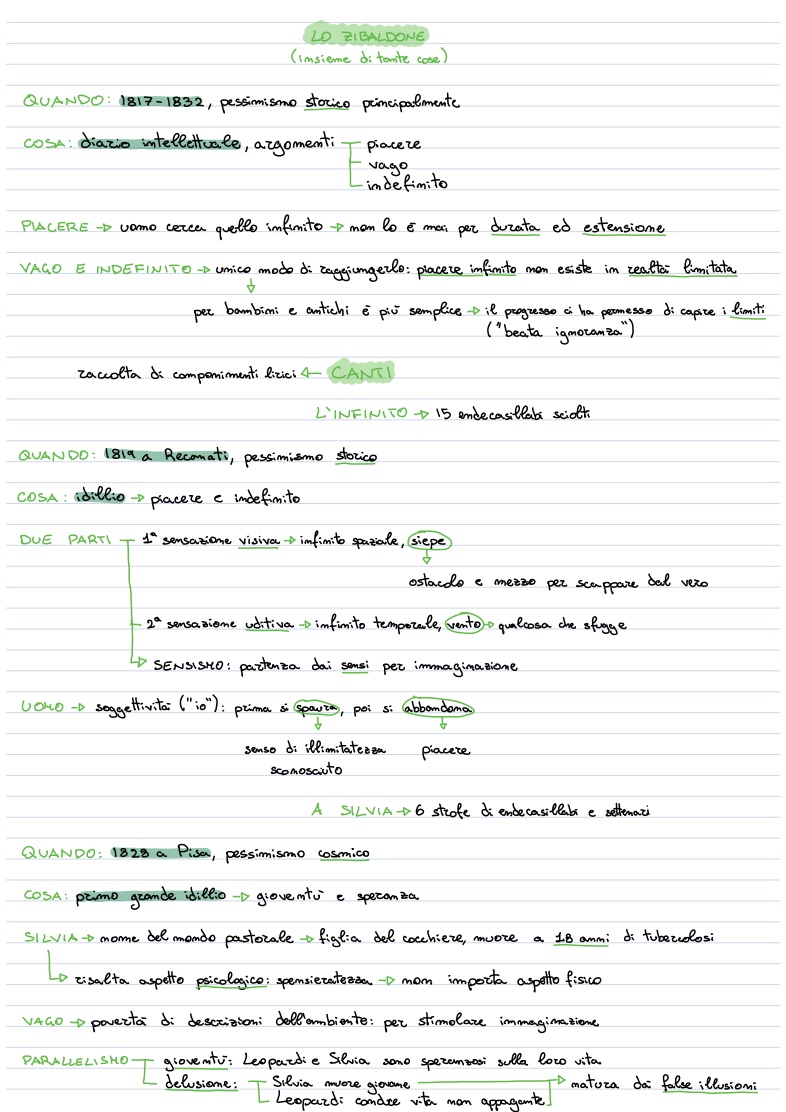 LO ZIBALDONE
(insieme di tante cose)
QUANDO: 1817-1832, pessimismo storico principalmente
COSA: diario intellettuale, argomenti
piacere
vago
indefinito
PIACERE → uomo cerca quello infinito → non lo è mai per durata ed estensione
VAGO E INDEFINITO → unico modo di raggiungerlo: piacere infinito non esiste in realtà limitata
per bambini e antichi è più semplice → il progresso ci ha permesso di capire i limiti
("beata ignoranza")
raccolta di componimenti lirici ← CANTI
L'INFINITO → 15 endecasillabi sciolti
QUANDO: 1819 a Recanati, pessimismo storico
COSA: idillio → piacere e indefinito
DUE PARTI
1ª sensazione visiva → infinito spaziale, siepe
ostacolo e mezzo per scappare dal vero
2ª sensazione uditiva → infinito temporale, vento → qualcosa che sfugge
SENSISMO: partenza dai sensi per immaginazione
UOMO → soggettività ("io"): prima si spaura, poi si abbandona
senso di illimitatezza piacere
sconosciuto
A SILVIA → 6 strofe di endecasillabi e settenari
QUANDO: 1828 a Pisa, pessimismo cosmico
COSA: primo grande idillio → gioventù e speranza
SILVIA → nome del mondo pastorale → figlia del cocchiere, muore a 18 anni di tubercolosi
risalta aspetto psicologico: spensieratezza → non importa aspetto fisico
VAGO → povertà di descrizioni dell'ambiente: per stimolare immaginazione
PARALLELISMO
gioventù: Leopardi e Silvia sono speranzosi sulla loro vita
delusione: Silvia muore giovane → matura dai false illusioni
Leopardi condre vita non appagante